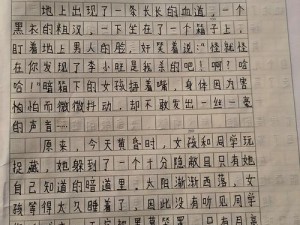 地上出现了一条长长的血道，一个
黑衣的粗汉，一下坐在了一个箱子上，
盯着地上男人的脸，奸笑着说："怪就怪
在你发现了李小旺是我杀的吧！啊？哈
哈！"暗箱下的女孩捂着嘴，身体因为害
怕而微微抖动，却不敢发出一丝一毫
的声音……
原来，今天黄昏时，女孩和同学玩
捉藏，她躲到了一个十分隐敝且只有她
自己知道的暗道里。太阳渐渐西落，女
孩等得太久睡着了，因此没有听见同学